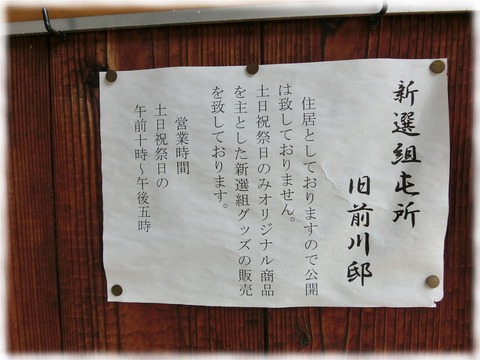 新選組屯所
旧前川邸
住居としておりますので公開
は致しておりません。
土日祝祭日のみオリジナル商品
を主とした新選組グッズの販売
を致しております。
営業時間
土日祝祭日の
午前十時～午後五時